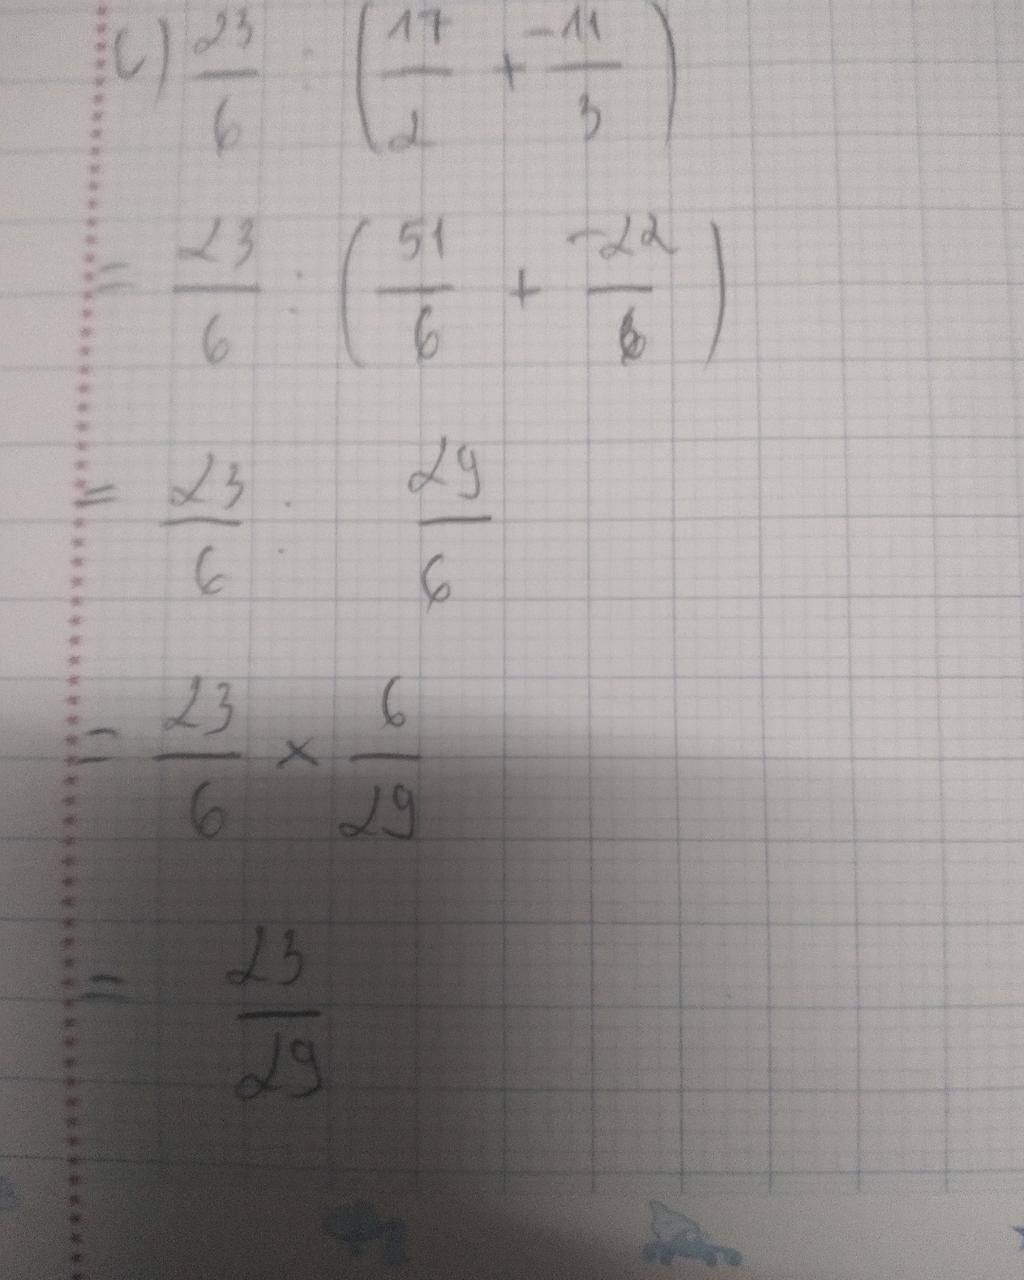 c) 23/6 : (17/2 + -11/3)
= 23/6 : (51/6 + -22/6)
= 23/6 : 29/6
= 23/6 × 6/29
= 23/29